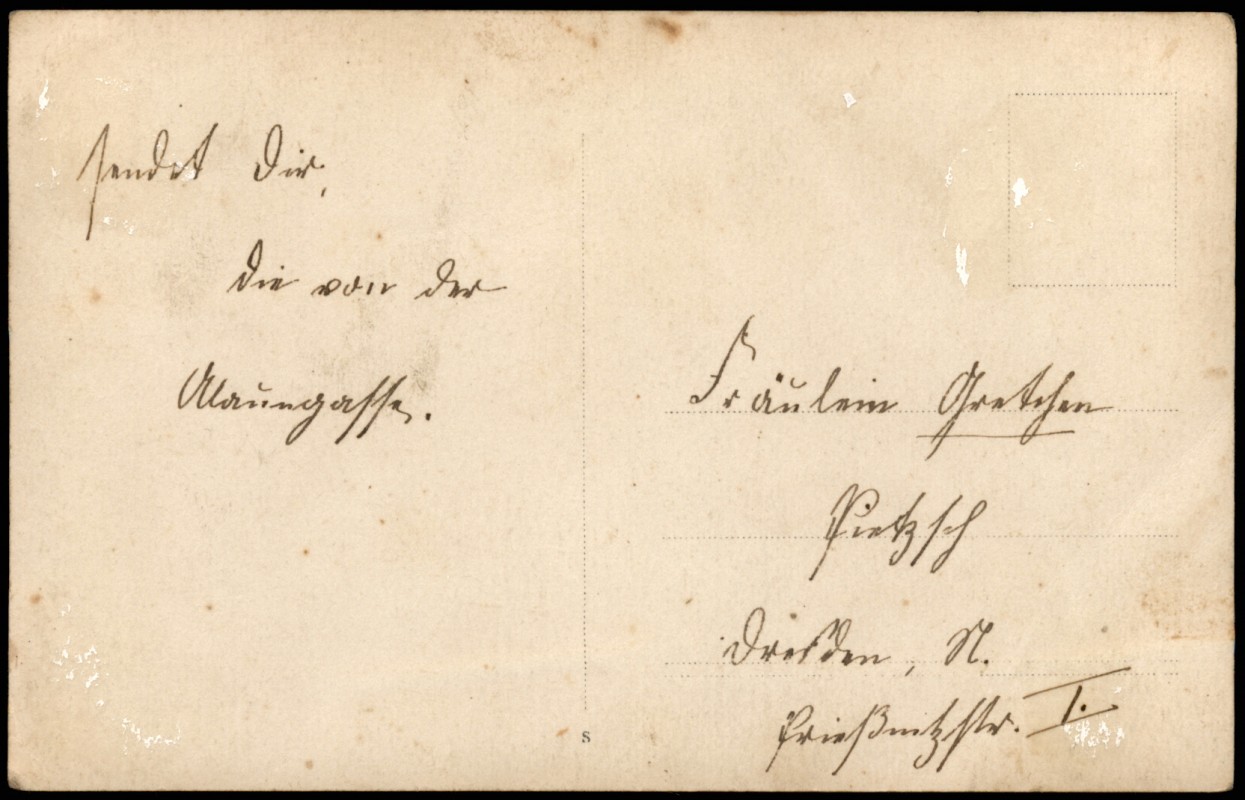 sendet Dir,
die von der
Alaungasse.
Fräulein Gretchen
Pietzsch
Dresden, N.
Prießnitzstr. I.
s